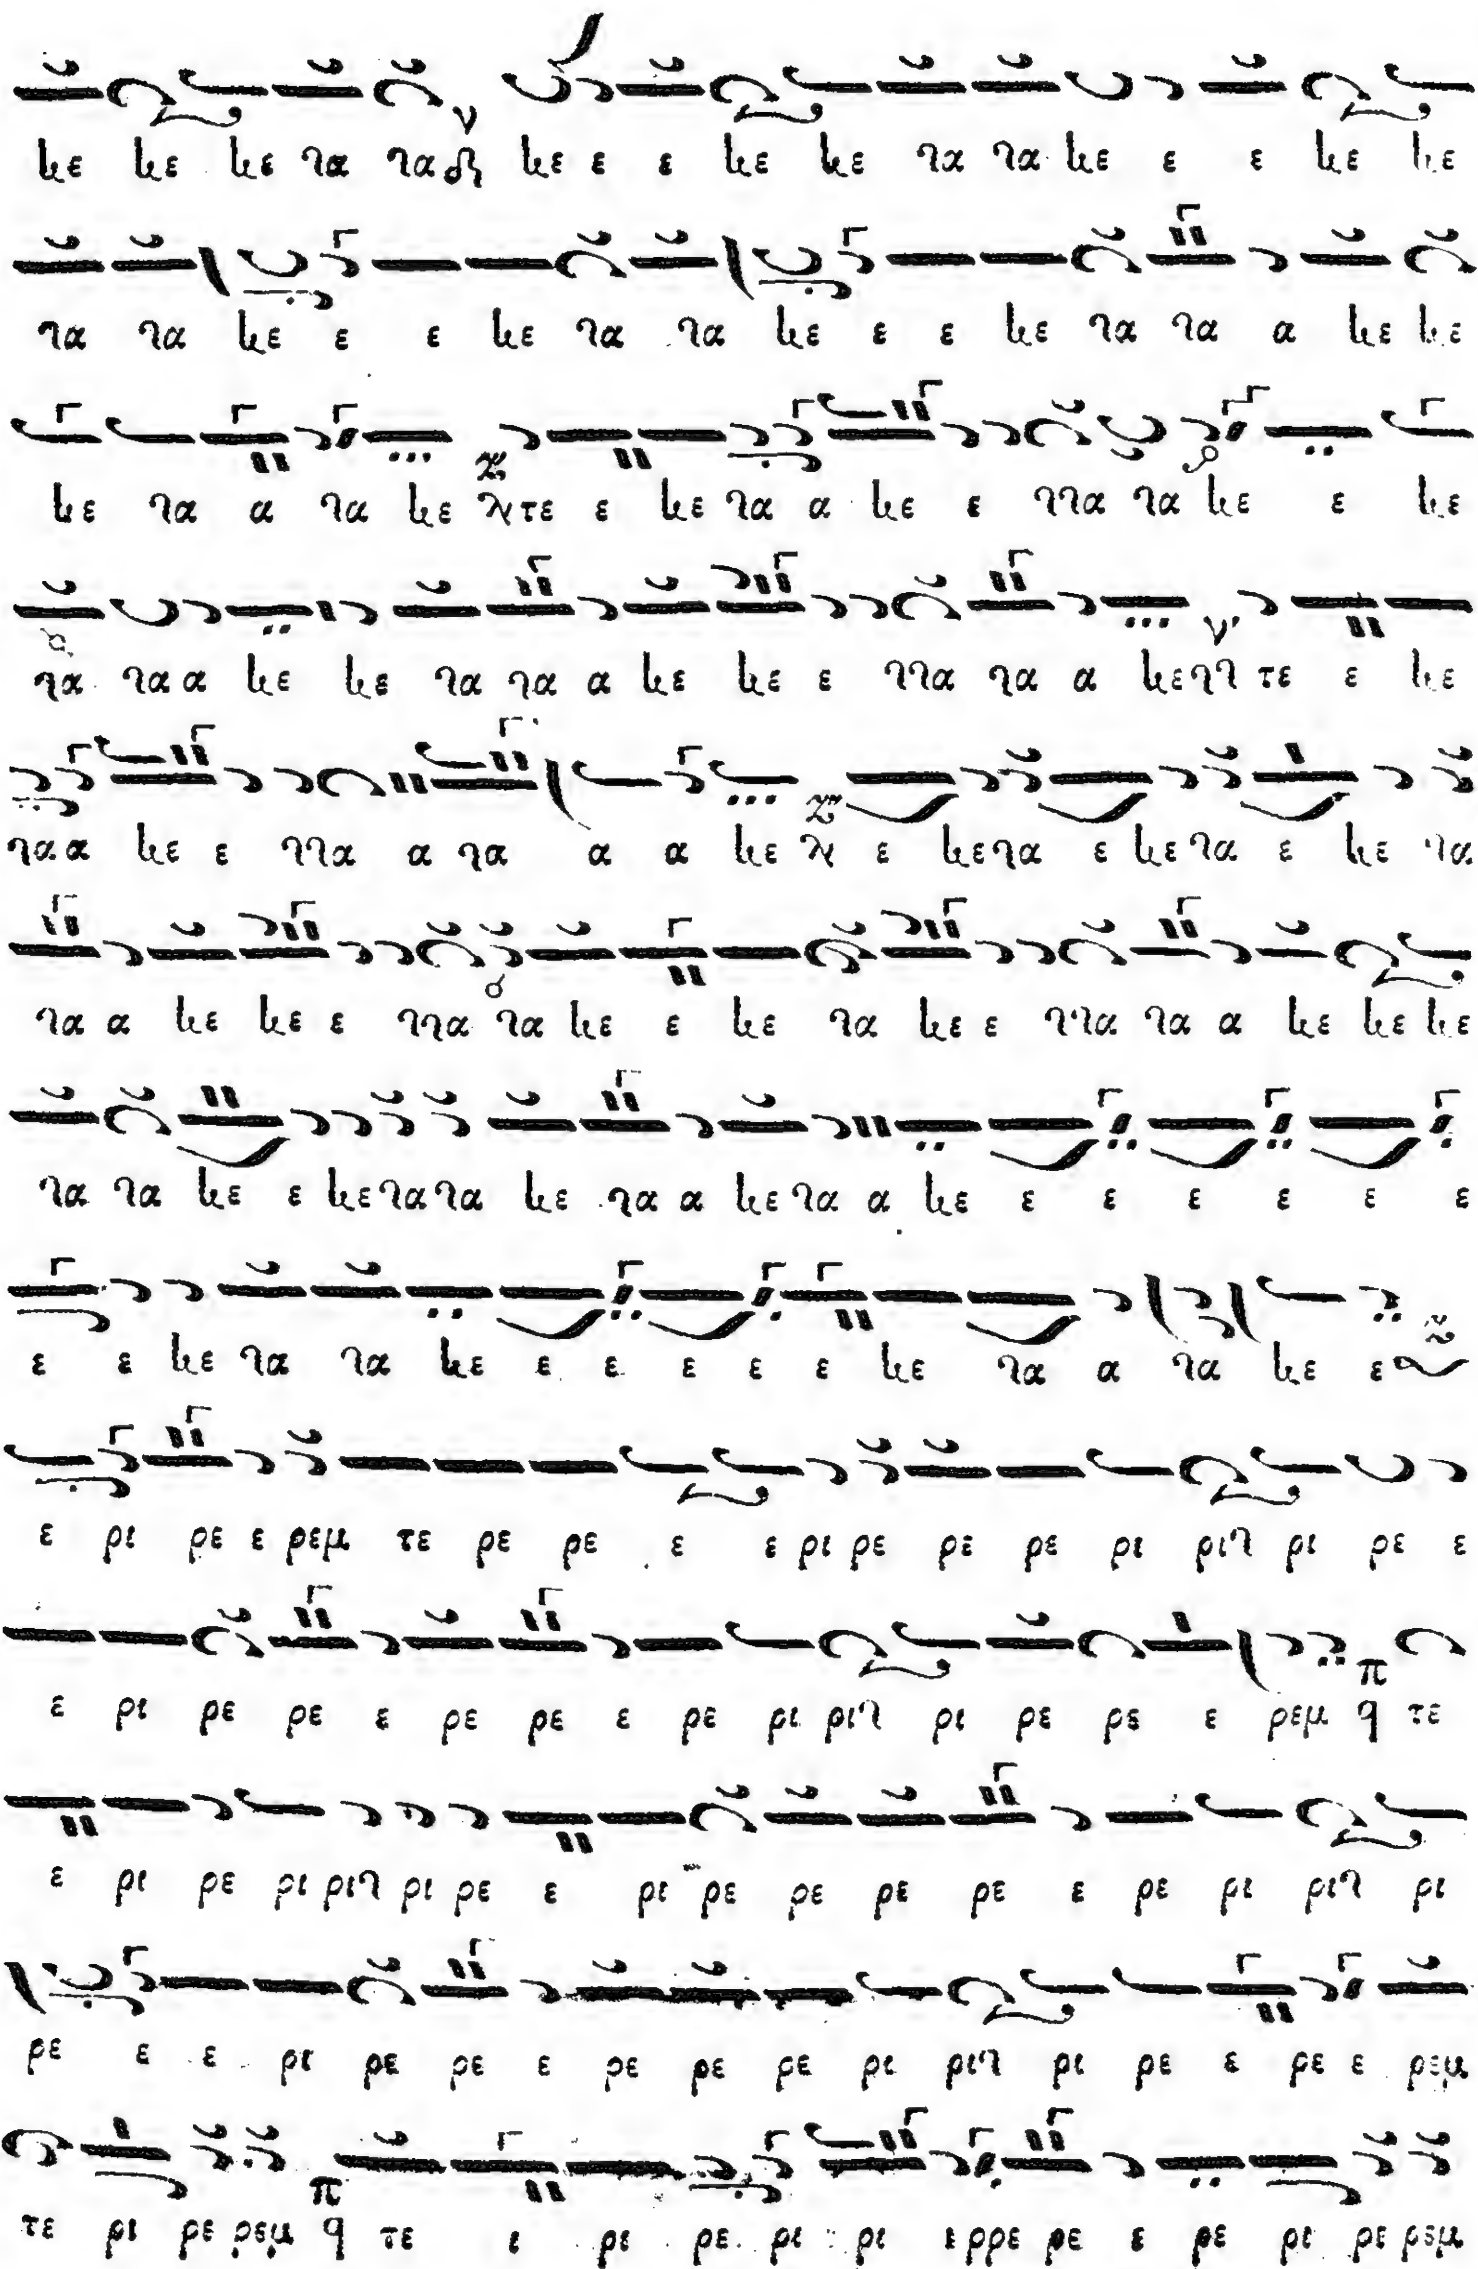 νε νε νε να να νε ε ε νε νε να να νε ε ε νε νε
να να νε ε ε νε να να νε ε ε νε να να α νε νε
νε να α να νε τε ε νε να α νε ε ννα να νε ε νε
να να α νε νε να να α νε νε ε ννα να α νε τε ε νε
να α νε ε ννα α να α α νε ε νε να ε νε να ε νε να
να α νε νε ε ννα να νε ε νε να νε ε ννα να α νε νε νε
να να νε ε νε να να νε να α νε να α νε ε ε ε ε ε ε
ε ε νε να να νε ε ε ε ε ε νε να α να νε ε
ε ρι ρε ε ρεμ τε ρε ρε ε ε ρι ρε ρε ρε ρι ριν ρι ρε ε
ε ρι ρε ρε ε ρε ρε ε ρε ρι ριν ρι ρε ρε ε ρεμ π q τε
ε ρι ρε ρι ριν ρι ρε ε ρι ρε ρε ρε ρε ε ρε ρι ριν ρι
ρε ε ε ρι ρε ρε ε ρε ρε ρε ρι ριν ρι ρε ε ρε ε ρεμ
τε ρι ρε ρεμ π q τε ι ρι ρε ρι ρι ε ρρε ρε ε ρε ρι ρε ρεμ